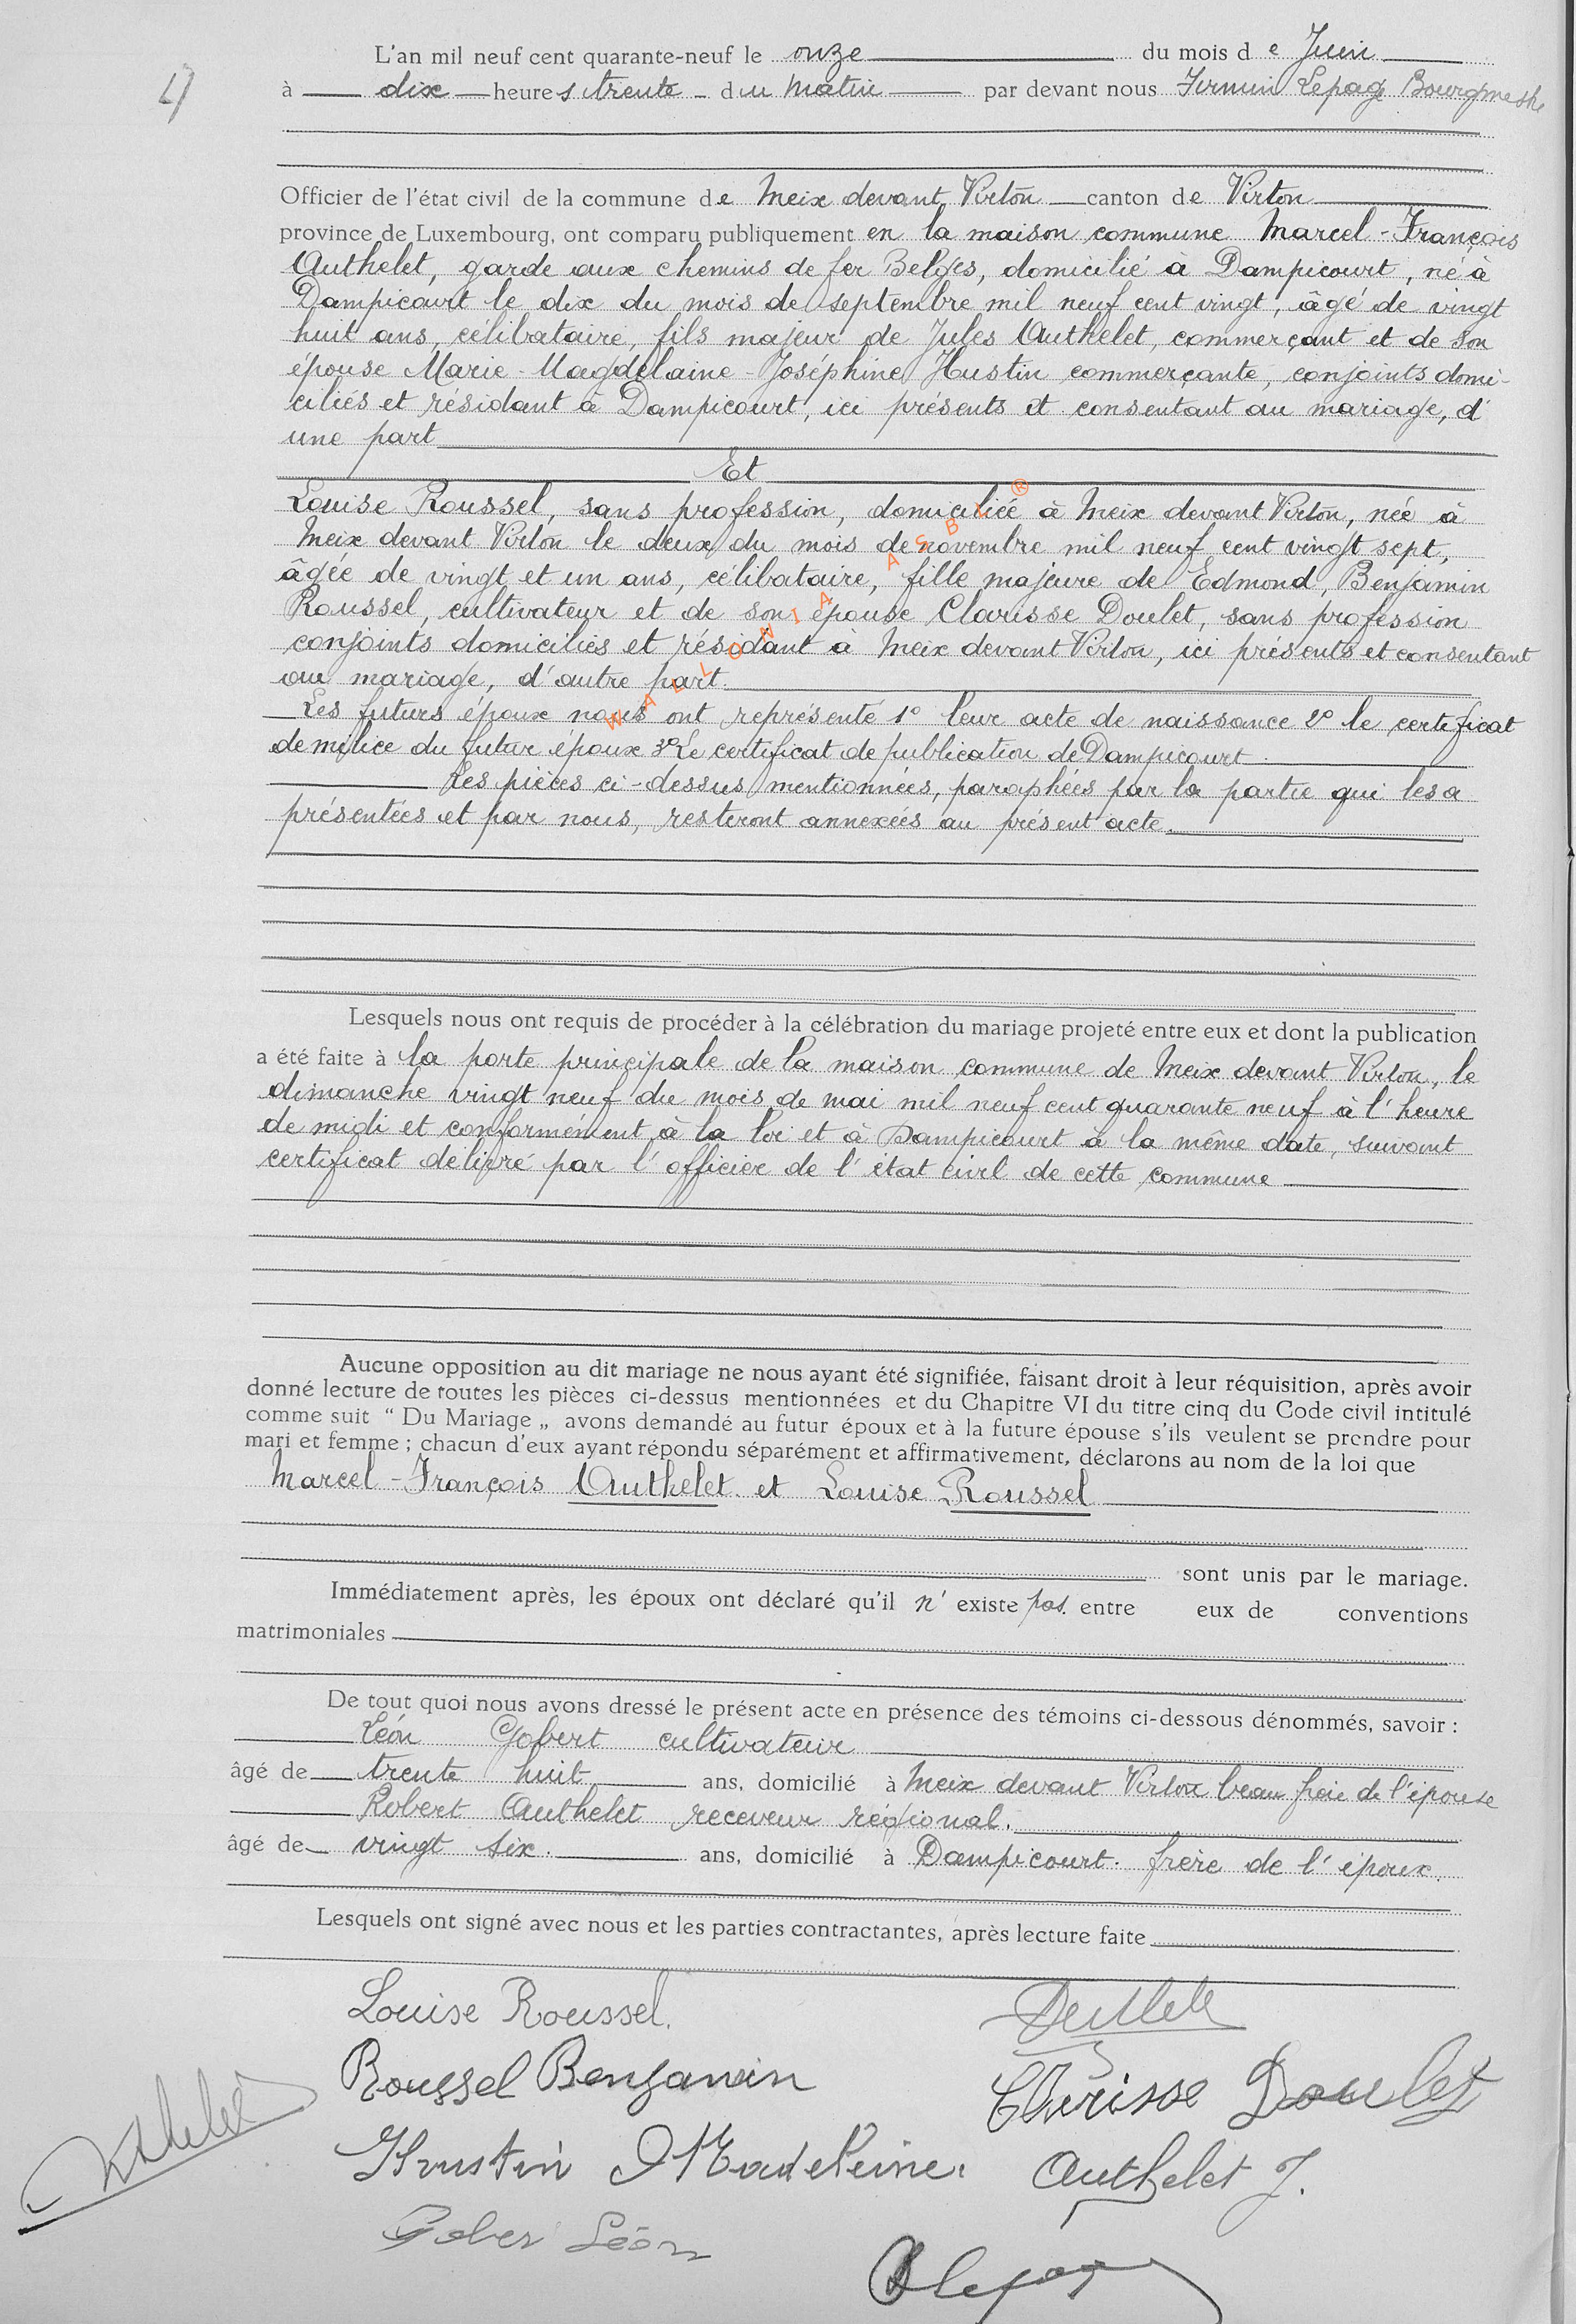 4
L'an mil neuf cent quarante-neuf le onze du mois de Juin
à dix heures trente du matin par devant nous Firmin Lepage Bourgmestre
Officier de l'état civil de la commune de Meix devant Virton canton de Virton
province de Luxembourg, ont comparu publiquement en la maison commune Marcel-François
Authelet, garde aux chemins de fer Belges, domicilié à Dampicourt, né à
Dampicourt le dix du mois de septembre mil neuf cent vingt, âgé de vingt
huit ans, célibataire, fils majeur de Jules Authelet, commerçant et de son
épouse Marie-Magdelaine-Joséphine Hustin commerçante, conjoints domi-
ciliés et résidant à Dampicourt, ici présents et consentant au mariage, d'
une part
Et
Louise Roussel, sans profession, domiciliée à Meix devant Virton, née à
Meix devant Virton le deux du mois de novembre mil neuf cent vingt sept,
âgée de vingt et un ans, célibataire, fille majeure de Edmond, Benjamin
Roussel, cultivateur et de son épouse Clarisse Doulet, sans profession
conjoints domiciliés et résidant à Meix devant Virton, ici présents et consentant
au mariage, d'autre part.
Les futurs époux nous ont représenté 1° leur acte de naissance 2° le certificat
de milice du futur époux 3° Le certificat de publication de Dampicourt
Les pièces ci-dessus mentionnées, paraphées par la partie qui les a
présentées et par nous, resteront annexées au présent acte.
WALLONIA ASBL ®
Lesquels nous ont requis de procéder à la célébration du mariage projeté entre eux et dont la publication
a été faite à la porte principale de la maison commune de Meix devant Virton, le
dimanche vingt neuf du mois de mai mil neuf cent quarante neuf à l'heure
de midi et conformément à la loi et à Dampicourt à la même date, suivant
certificat délivré par l'officier de l'état civil de cette commune
Aucune opposition au dit mariage ne nous ayant été signifiée, faisant droit à leur réquisition, après avoir
donné lecture de toutes les pièces ci-dessus mentionnées et du Chapitre VI du titre cinq du Code civil intitulé
comme suit “ Du Mariage „ avons demandé au futur époux et à la future épouse s'ils veulent se prendre pour
mari et femme ; chacun d'eux ayant répondu séparément et affirmativement, déclarons au nom de la loi que
Marcel-François Authelet et Louise Roussel
sont unis par le mariage.
Immédiatement après, les époux ont déclaré qu'il n'existe pas entre eux de conventions
matrimoniales
De tout quoi nous avons dressé le présent acte en présence des témoins ci-dessous dénommés, savoir :
Léon Gobert cultivateur
âgé de trente huit ans, domicilié à Meix devant Virton beau frère de l'épouse
Robert Authelet receveur régional.
âgé de vingt six. ans, domicilié à Dampicourt. frère de l'époux.
Lesquels ont signé avec nous et les parties contractantes, après lecture faite
Louise Roussel.
Roussel Benjamin Clarisse Doulet
Hustin Madeleine. Authelet J.
Gober Léon